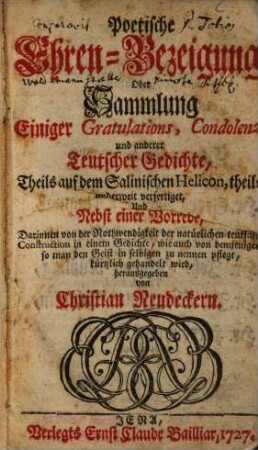 Poetische
Ehren-Bezeigung
Oder
Sammlung
Einiger Gratulations, Condolenz
und anderer
Teutscher Gedichte,
Theils auf dem Salinischen Helicon, theils
anderweit verfertiget,
Und
Nebst einer Vorrede,
Darinnen von der Nothwendigkeit der natürlichen teutschen
Construction in einem Gedichte, wie auch von demjenigen,
so man den Geist in selbigen zu nennen pfleget,
kürtzlich gehandelt wird,
herausgegeben
von
Christian Neudeckern.
JENA,
Verlegts Ernst Claude Bailliar, 1727.